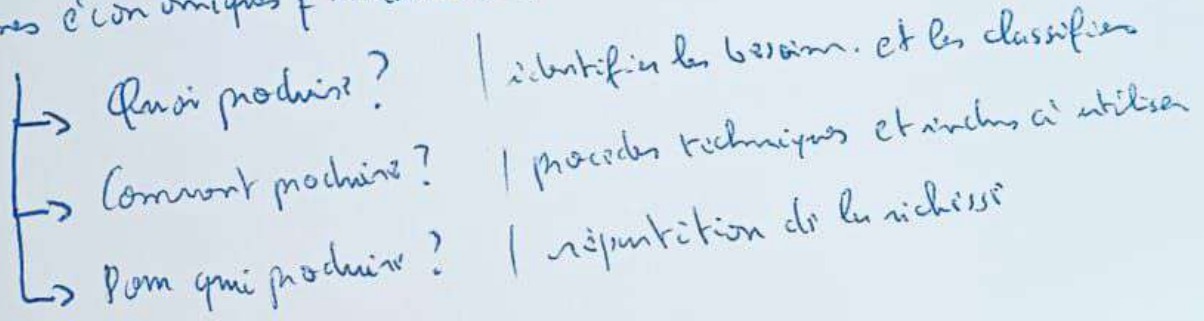 économiques
Quoi produire ? | identifier les besoins. et les classifier
Comment produire ? | procédés techniques et à utiliser
Pour qui produire ? | répartition de la richesse